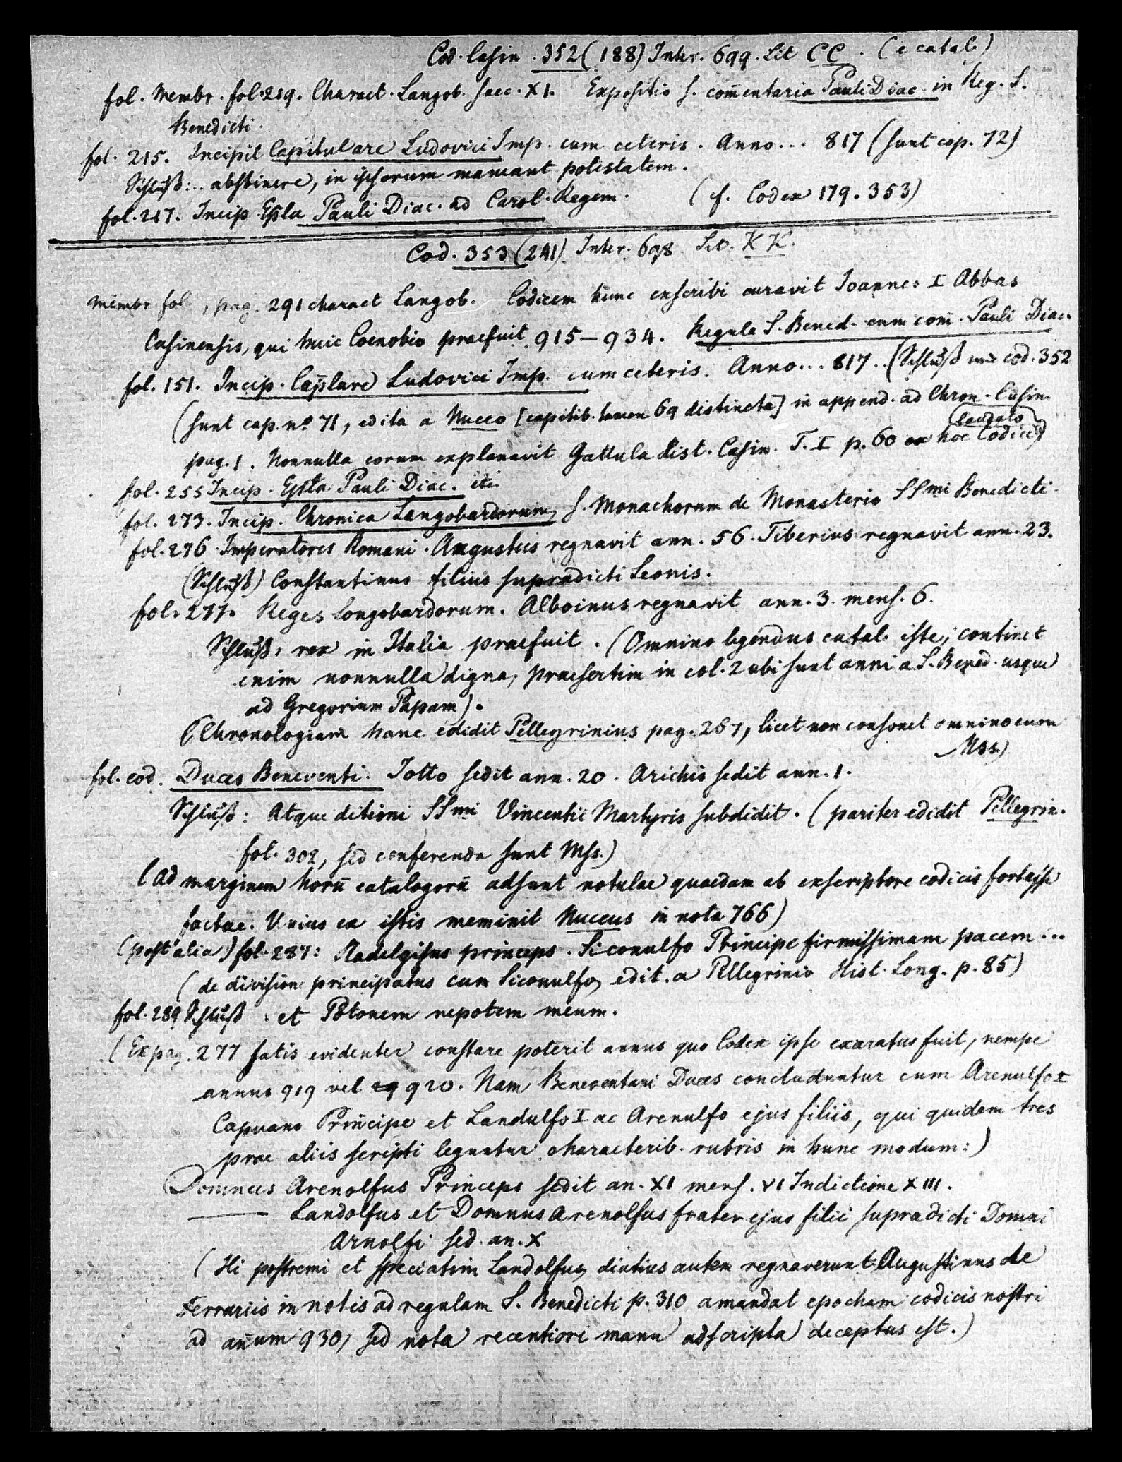 Cod. Casin. 352 (188) Inter. 699. Lit CC. (e catal.)
fol. membr. fol. 219. Charact. Langob. saec. XI. Expositio s. com̄entaria Pauli Diac. in Reg. S.
Benedicti.
fol. 215. Incipit Capitulare Ludovici Imp. cum ceteris. Anno... 817 (sunt cap. 72)
Schluß:.. abstinere, in ipsorum maneant potestatem.
fol. 217. Incip. Epl̄a Pauli Diac. ad Carol. Regem. (cf. Codex 179. 353)
Cod. 353 (241) Inter. 698 Lit. KK.
membr fol., pag. 291 charact Langob. Codicem hunc exscribi curavit Joannes I Abbas
Casinensis, qui huic Coenobio praefuit 915–934. Regula S. Bened. cum com̄. Pauli Diac.
fol. 151. Incip. Cap̄lare Ludovici Imp. cum ceteris. Anno... 817.. (Schluß wie cod. 352
(sunt cap. nº 71, edita a Nucco [capitib. tamen 69 distincta] in append. ad Chron. Casin.
pag. 1. Nonnulla eorum explanavit Gattula Hist. Casin. T. I p. 60 ex hoc Codice)
(laudato)
fol. 255 Incip. Epl̄a Pauli Diac. etc.
fol. 273. Incip. Chronica Langobardorum, s. Monachorum de Monasterio SSmi Benedicti.
fol. 276. Imperatores Romani. Augustus regnavit ann. 56. Tiberius regnavit ann. 23.
(Schluß) Constantinus filius supradicti Leonis.
fol. 277. Reges Longobardorum. Alboinus regnavit ann. 3. mens. 6.
Schluß: rex in Italia praefuit. (Omnino legendus catal. iste, continet
enim nonnulla digna, praesertim in col. 2 ubi sunt anni a S. Bened. usque
ad Gregorium Papam).
(Chronologiam hanc edidit Pellegrinius pag. 267, licet non consonet omnino cum
Mss.)
fol. eod. Duces Beneventi. Zotto sedit ann. 20. Arichis sedit ann. 1.
Schluß: Atque ditioni SSmi Vincentii Martyris subdidit. (pariter edidit Pellegrin.
fol. 302, sed conferenda sunt Mss.)
(ad marginem horū catalogorū adsunt notulae quaedam ab exscriptore codicis fortasse
factae. Unius ex istis meminit Nuceus in nota 766)
(post alia) fol. 287: Radelgisus princeps. Siconulfo Principe firmissimam pacem...
(de division principatus cum Siconulfo, edit. a Pellegrinio Hist. Long. p. 85)
fol. 289 Schluß : et Potonem nepotem meum.
(Ex pag. 277 satis evidenter constare poterit annus quo Codex ipse exaratus fuit, nempe
annus 919 vel 920. Nam Beneventani Duces concluduntur cum Arenulfo I
Capuano Principe et Landulfo I ac Arenulfo ejus filiis, qui quidem tres
prae aliis scripti leguntur characterib. rubris in hunc modum:)
Domnus Arenolfus Princeps sedit an. XI mens. VI Indictione XIII.
Landolfus et Domnus Arenolfus frater ejus filii supradicti Domni
Arnolfi sed. an. X
(Hi postremi et speciatim Landolfus, diutius autem regnaverunt. Augustinus de
Ferrariis in notis ad regulam S. Benedicti p. 310 amandat epocham codicis nostri
ad an̄um 930, sed nota recentiore manu adscripta deceptus est.)